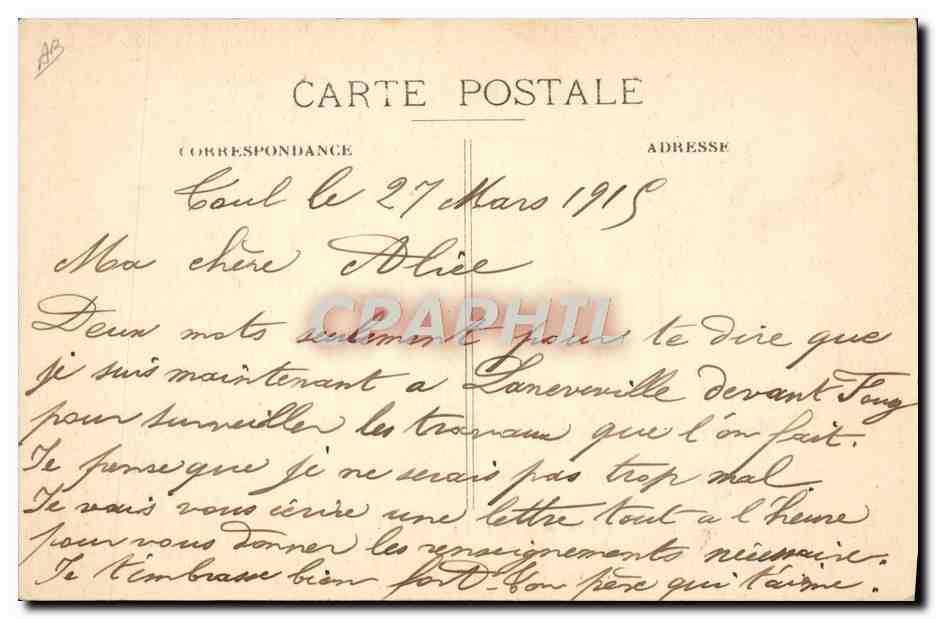 AB
CARTE POSTALE
CORRESPONDANCE
ADRESSE
Toul le 27 Mars 1915
Ma chère Alice
CPAPHIL
Deux mots seulement pour te dire que
je suis maintenant a Laneuveville devant Foug
pour surveiller les travaux que l'on fait.
Je pense que je ne serais pas trop mal
Je vais vous écrire une lettre tout a l'heure
pour vous donner les renseignements nécessaire.
Je t'embrasse bien fort. Ton père qui t'aime.